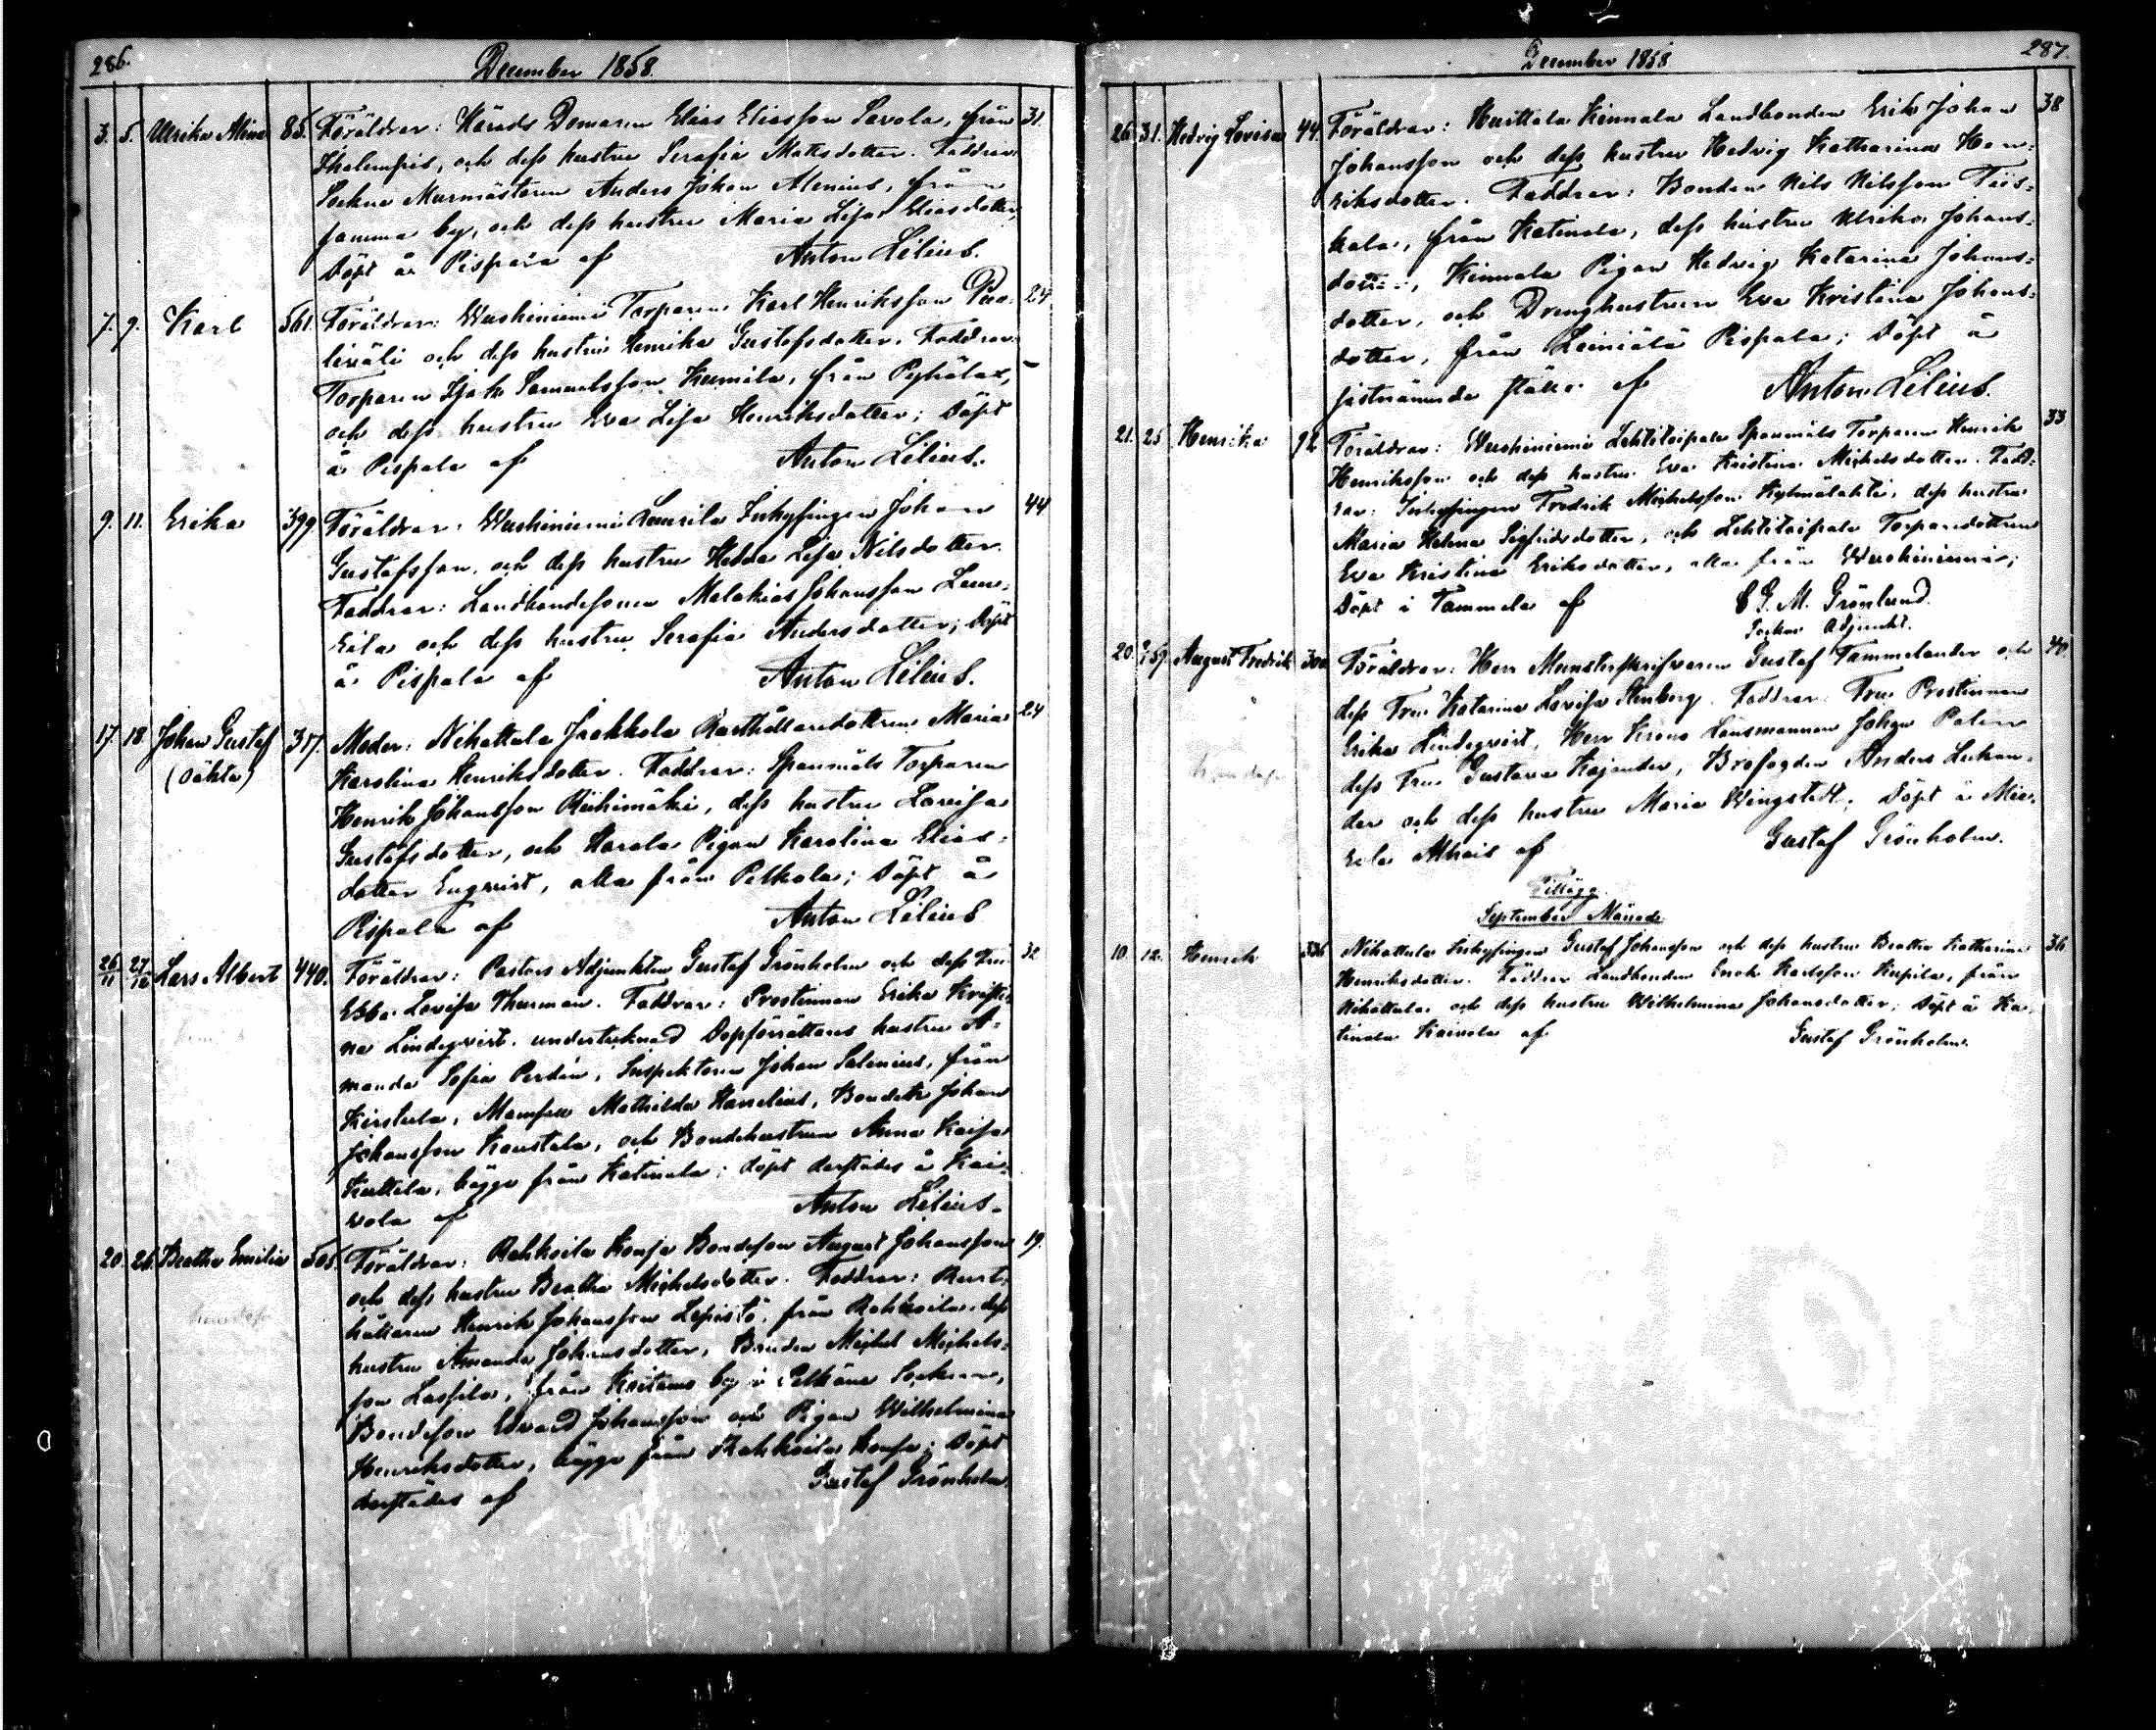 286.
December 1858.
3. 5. Ulrika Alina 85. Föräldrar: Härads Domaren Elias Eliasson Savola, från 31.
Ihalempis, och dess hustru Serafia Mattsdotter. Faddrar:
Sockne Murmästaren Anders Johan Alenius, från
samma by, och dess hustru Maria Lisa Eliasdotter,
Döpt å Pispala af Anton Lilius.
7. 9. Karl 561. Föräldrar: Wuohiniemi Torparen Karl Henriksson Puo- 24
liväli och dess hustru Henrika Gustafsdotter. Faddrar:
Torparen Isak Samuelsson Kumila, från Pyhälax,
och dess hustru Eva Lisa Henriksdotter; Döpt
å Pispala af Anton Lilius.
9. 11. Erika 399. Föräldrar: Wuohiniemi Laurila Inhysingen Johan 44
Gustafsson, och dess hustru Hedda Lisa Nilsdotter.
Faddrar: Landbondesonen Malakias Johansson Lau-
rila och dess hustru Serafia Andersdotter; Döpt
å Pispala af Anton Lilius.
17. 18. Johan Gustaf 317. Moder: Nihattula Jaakkola Rusthållaredottren Maria 24
(oäkta) Karolina Henriksdotter. Faddrar: Spanmåls Torparen
Henrik Johansson Riihimäki, dess hustru Lovisa
Gustafsdotter, och Harala Pigan Karolina Elias-
dotter Engqvist, alla från Pelkola; Döpt å
Pispala af Anton Lilius
26/11 27/12 Lars Albert 440. Föräldrar: Pastors Adjunkten Gustaf Grönholm och dess Fru 32
Ebba Lovisa Thurman. Faddrar: Prostinnan Erika Kristi-
na Lindeqvist, undertecknad Dopförrättares hustru A-
manda Sofia Perdén, Inspektoren Johan Salenius, från
Kirstula, Mamsell Mathilda Hanelius, Bonden Johan
Johansson Kaustala, och Bondehustrun Anna Kaisa
Kuttila, bägge från Katinala; Döpt derstädes å Kai-
vola af Anton Lilius.
20. 26. Beatha Emilia 505. Föräldrar: Rahkoila Konsa Bondeson August Johansson 19.
och dess hustru Beatha Michelsdotter. Faddrar: Rust-
hållaren Henrik Johansson Lepistö, från Rahkoila, dess
hustru Amanda Johansdotter, Bonden Michel Michels-
son Lassila, från Kaitamo by i Pelkäne Socken,
Bondeson Edvard Johansson och Pigan Wilhelmina
Henriksdotter, bägge från Rahkoila Konsa; Döpt
derstädes af Gustaf Grönholm.
December 1858
287.
26. 31. Hedvig Lovisa 44. Föräldrar: Hurttala Kinnala Landbonden Erik Johan 38
Johansson och dess hustru Hedvig Katharina Hen-
riksdotter. Faddrar: Bonden Nils Nilsson Tiis-
kala, från Katinala, dess hustru Ulrika Johans-
dotter, Kinnala Pigan Hedvig Katarina Johans-
dotter, och Drenghustrun Eva Kristina Johans-
dotter, från Leiniälä Pispala; Döpt å
sistnämnda ställe af Anton Lilius.
21. 25 Henrika 92. Föräldrar: Wuohiniemi Lehtitaipale Spanmåls Torparen Henrik 33
Henriksson och dess hustru Eva Kristina Michelsdotter. Fadd-
rar: Inhysingen Fredrik Michelsson Kylmälahti, dess hustru
Maria Helena Sigfridsdotter, och Lehtitaipale Torparedottren
Eva Kristina Eriksdotter, alla från Wuohiniemi;
Döpt i Tammela af C G. M. Grönlund.
Sockne Adjunkt.
20. August Fredrik 300. Föräldrar: Herr Munsterskrifvaren Gustaf Tammelander och 40
dess Fru Katarina Lovisa Stenberg. Faddrar: Fru Prostinnan
Erika Lindeqvist, Herr Krono Länsmannen Johan Palen
dess Fru Gustava Kajander, Brofogden Anders Lukan-
der och dess hustru Maria Wingstedt; Döpt å Mie-
rola Alhais af Gustaf Grönholm.
Tillägg.
September Månad
10. 12. Henrik 336 Nihattula Inhysingen Gustaf Johansson och dess hustru Beatha Katharina 36
Henriksdotter. Faddrar Landbonden Enok Karlsson Knpila, från
Nihattula och dess hustru Wilhelmina Johansdotter; Döpt å Ka-
tinala Kaivola af Gustaf Grönholm.